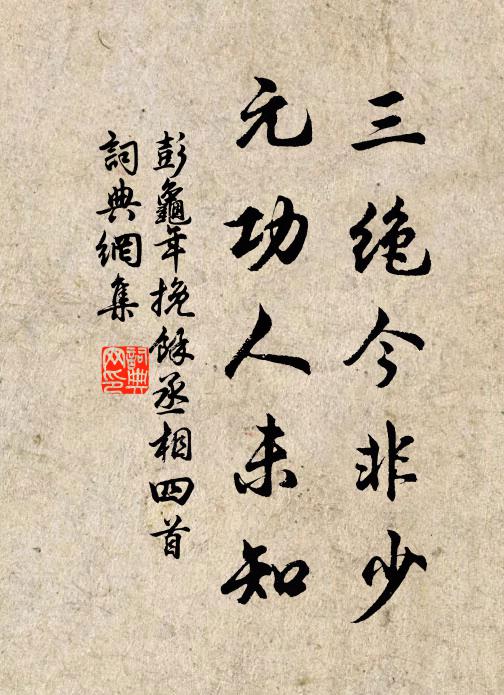 三绝今非少
元功人未知
彭龜年挽餘丞相四首
詞典網集
詞典
网印